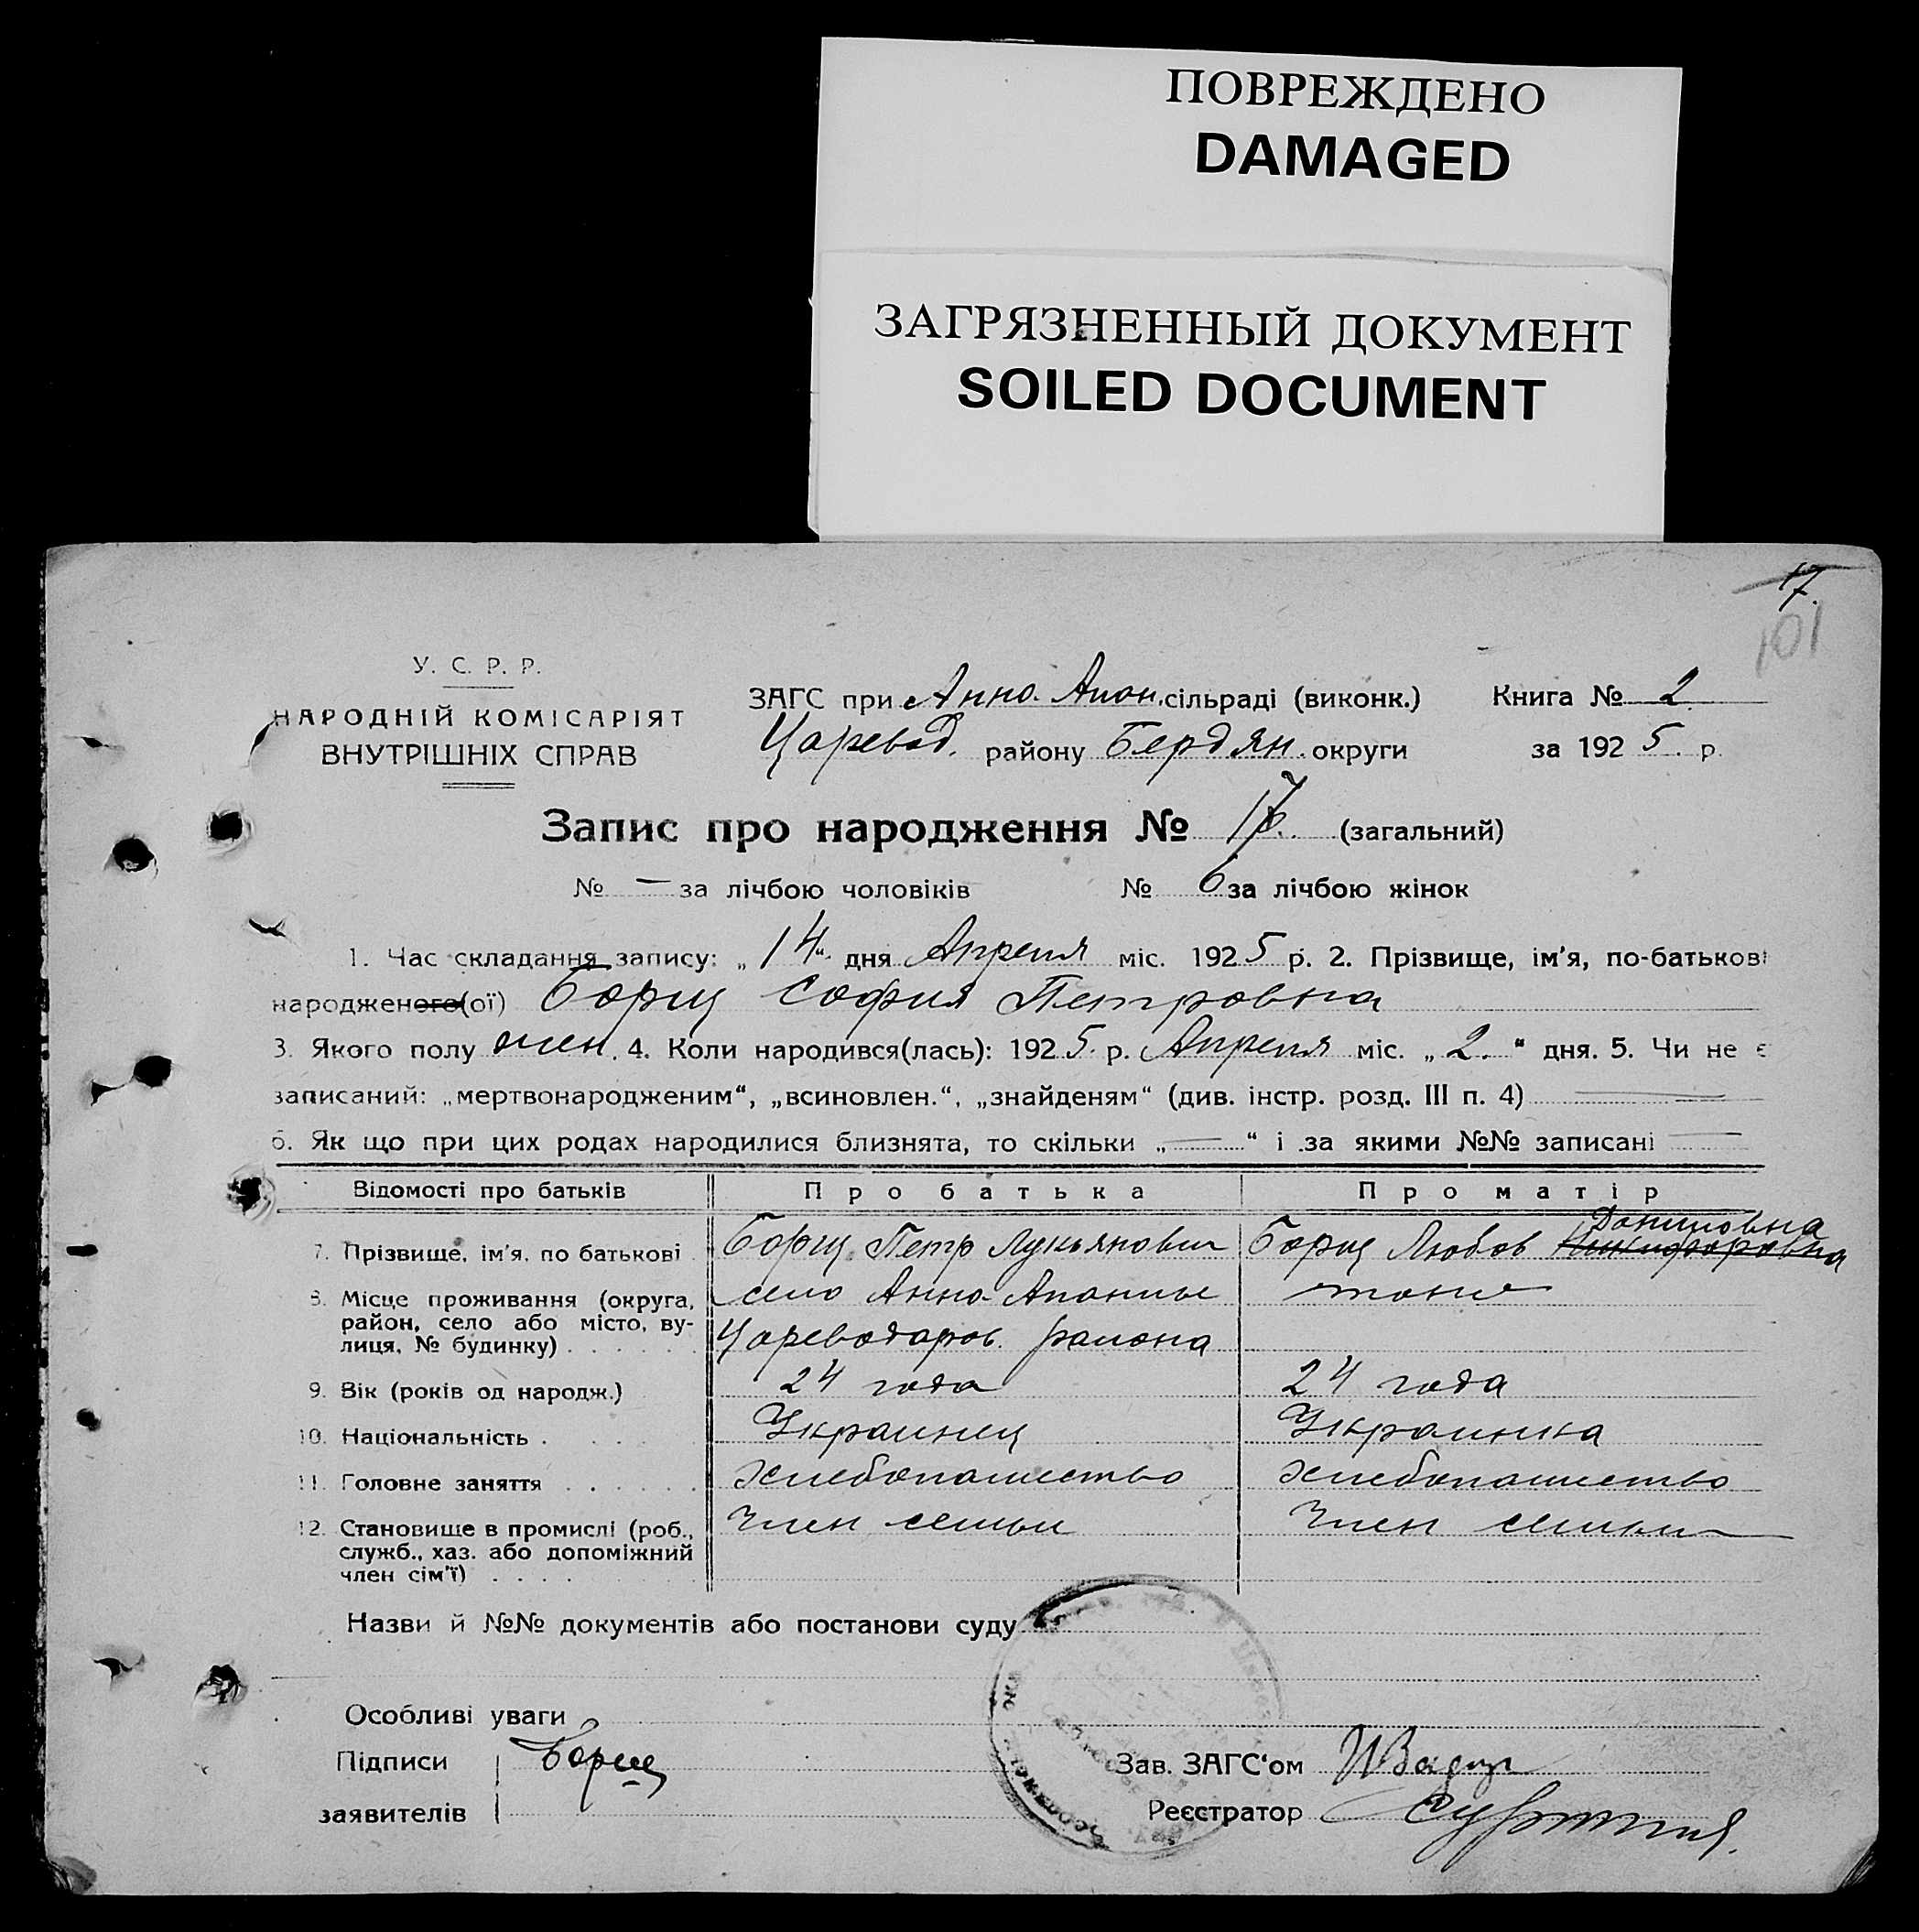 ПОВРЕЖДЕНО
DAMAGED
ЗАГРЯЗНЕННЫЙ ДОКУМЕНТ
SOILED DOCUMENT
17.
101
У. С. Р. Р.
НАРОДНІЙ КОМІСАРІЯТ
ВНУТРІШНІХ СПРАВ
ЗАГС при Анно-Апан. сільраді (виконк.) Книга № 2
Царевод. району Бердян. округи за 1925 р.
Запис про народження № 17. (загальний)
№ — за лічбою чоловіків № 6 за лічбою жінок
1. Час складання запису: „14“ дня Апреля міс. 1925 р. 2. Прізвище, ім'я, по-батькові
народженого(ої) Борщ София Петровна
3. Якого полу жен. 4. Коли народився(лась): 1925 р. Апреля міс. „2.“ дня. 5. Чи не є
записаний: „мертвонародженим“, „всиновлен.“, „знайденям“ (див. інстр. розд. III п. 4) —
6. Як що при цих родах народилися близнята, то скільки „—“ і за якими №№ записані —
Відомості про батьків Про батька Про матір
7. Прізвище, ім'я, по батькові Борщ Петр Лукьянович Борщ Любов Никифоровна Даниловна
8. Місце проживання (округа, село Анно-Апанлы тоже
район, село або місто, ву-
лиця, № будинку) . . . . . . Цареводаров. района
9. Вік (років од народж.) 24 года 24 года
10. Національність . Украинец Украинка
11. Головне заняття . . . . . . Хлебопашество Хлебопашество
12. Становище в промислі (роб., Член семьи Член семьи
служб., хаз. або допоміжний
член сім'ї) . . . .
Назви й №№ документів або постанови суду
Особливі уваги
Підписи Борщ Зав. ЗАГС'ом
заявителів Реєстратор